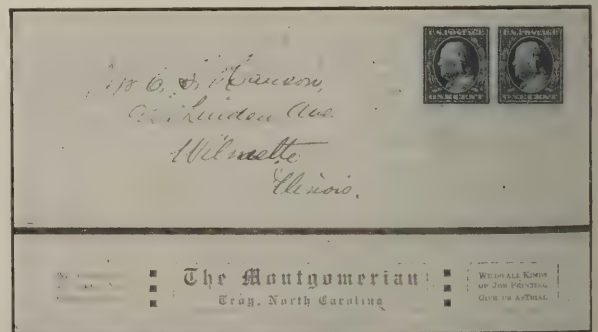 U.S. POSTAGE U.S. POSTAGE
ONE CENT ONE CENT
Linden Ave.
Wilmette
Illinois.
The Montgomerian
Troy, North Carolina
WE DO ALL KINDS
OF JOB PRINTING
GIVE US A TRIAL